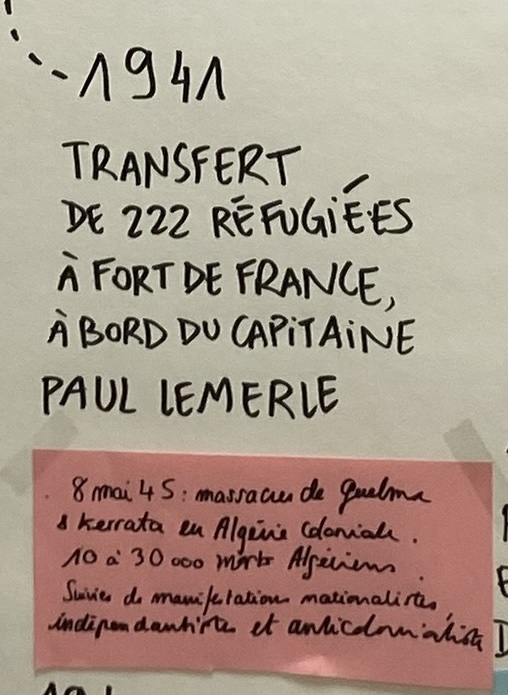 1941
TRANSFERT
DE 222 RÉFUGIÉ·ES
À FORT DE FRANCE,
À BORD DU CAPITAINE
PAUL LEMERLE
8 mai 45 : massacres de Guelma
& Kerrata en Algérie Coloniale.
10 à 30 000 morts Algériens.
Suivies de manifestations nationalistes,
indépendantistes et anticolonialistes